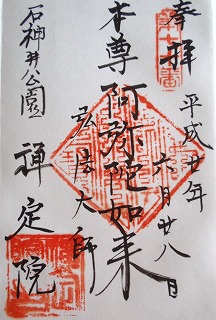 奉拝
平成廿年
六月廿八日
本尊阿弥陀如来
弘法大師
石神井公園
禅定院